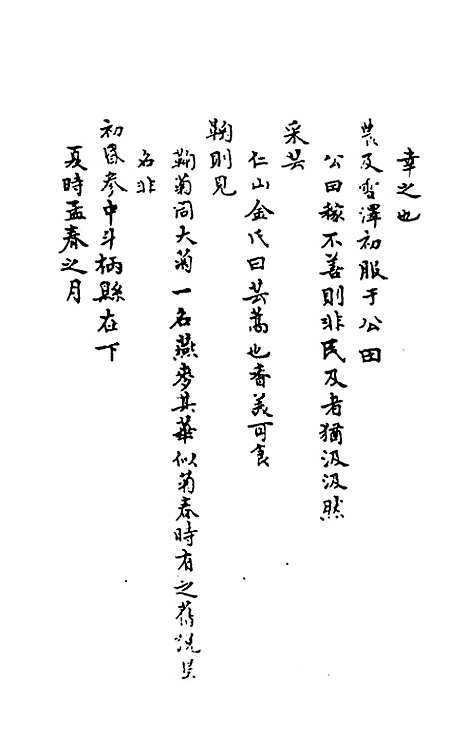 幸之也
農及雪澤初服于公田
公田稼不善則非民及者猶汲汲然
采芸
仁山金氏曰芸蒿也香美可食
鞠則見
鞠菊同大菊一名燕麥其華似菊春時有之舊說星
名非
初昏參中斗柄縣在下
夏時孟春之月